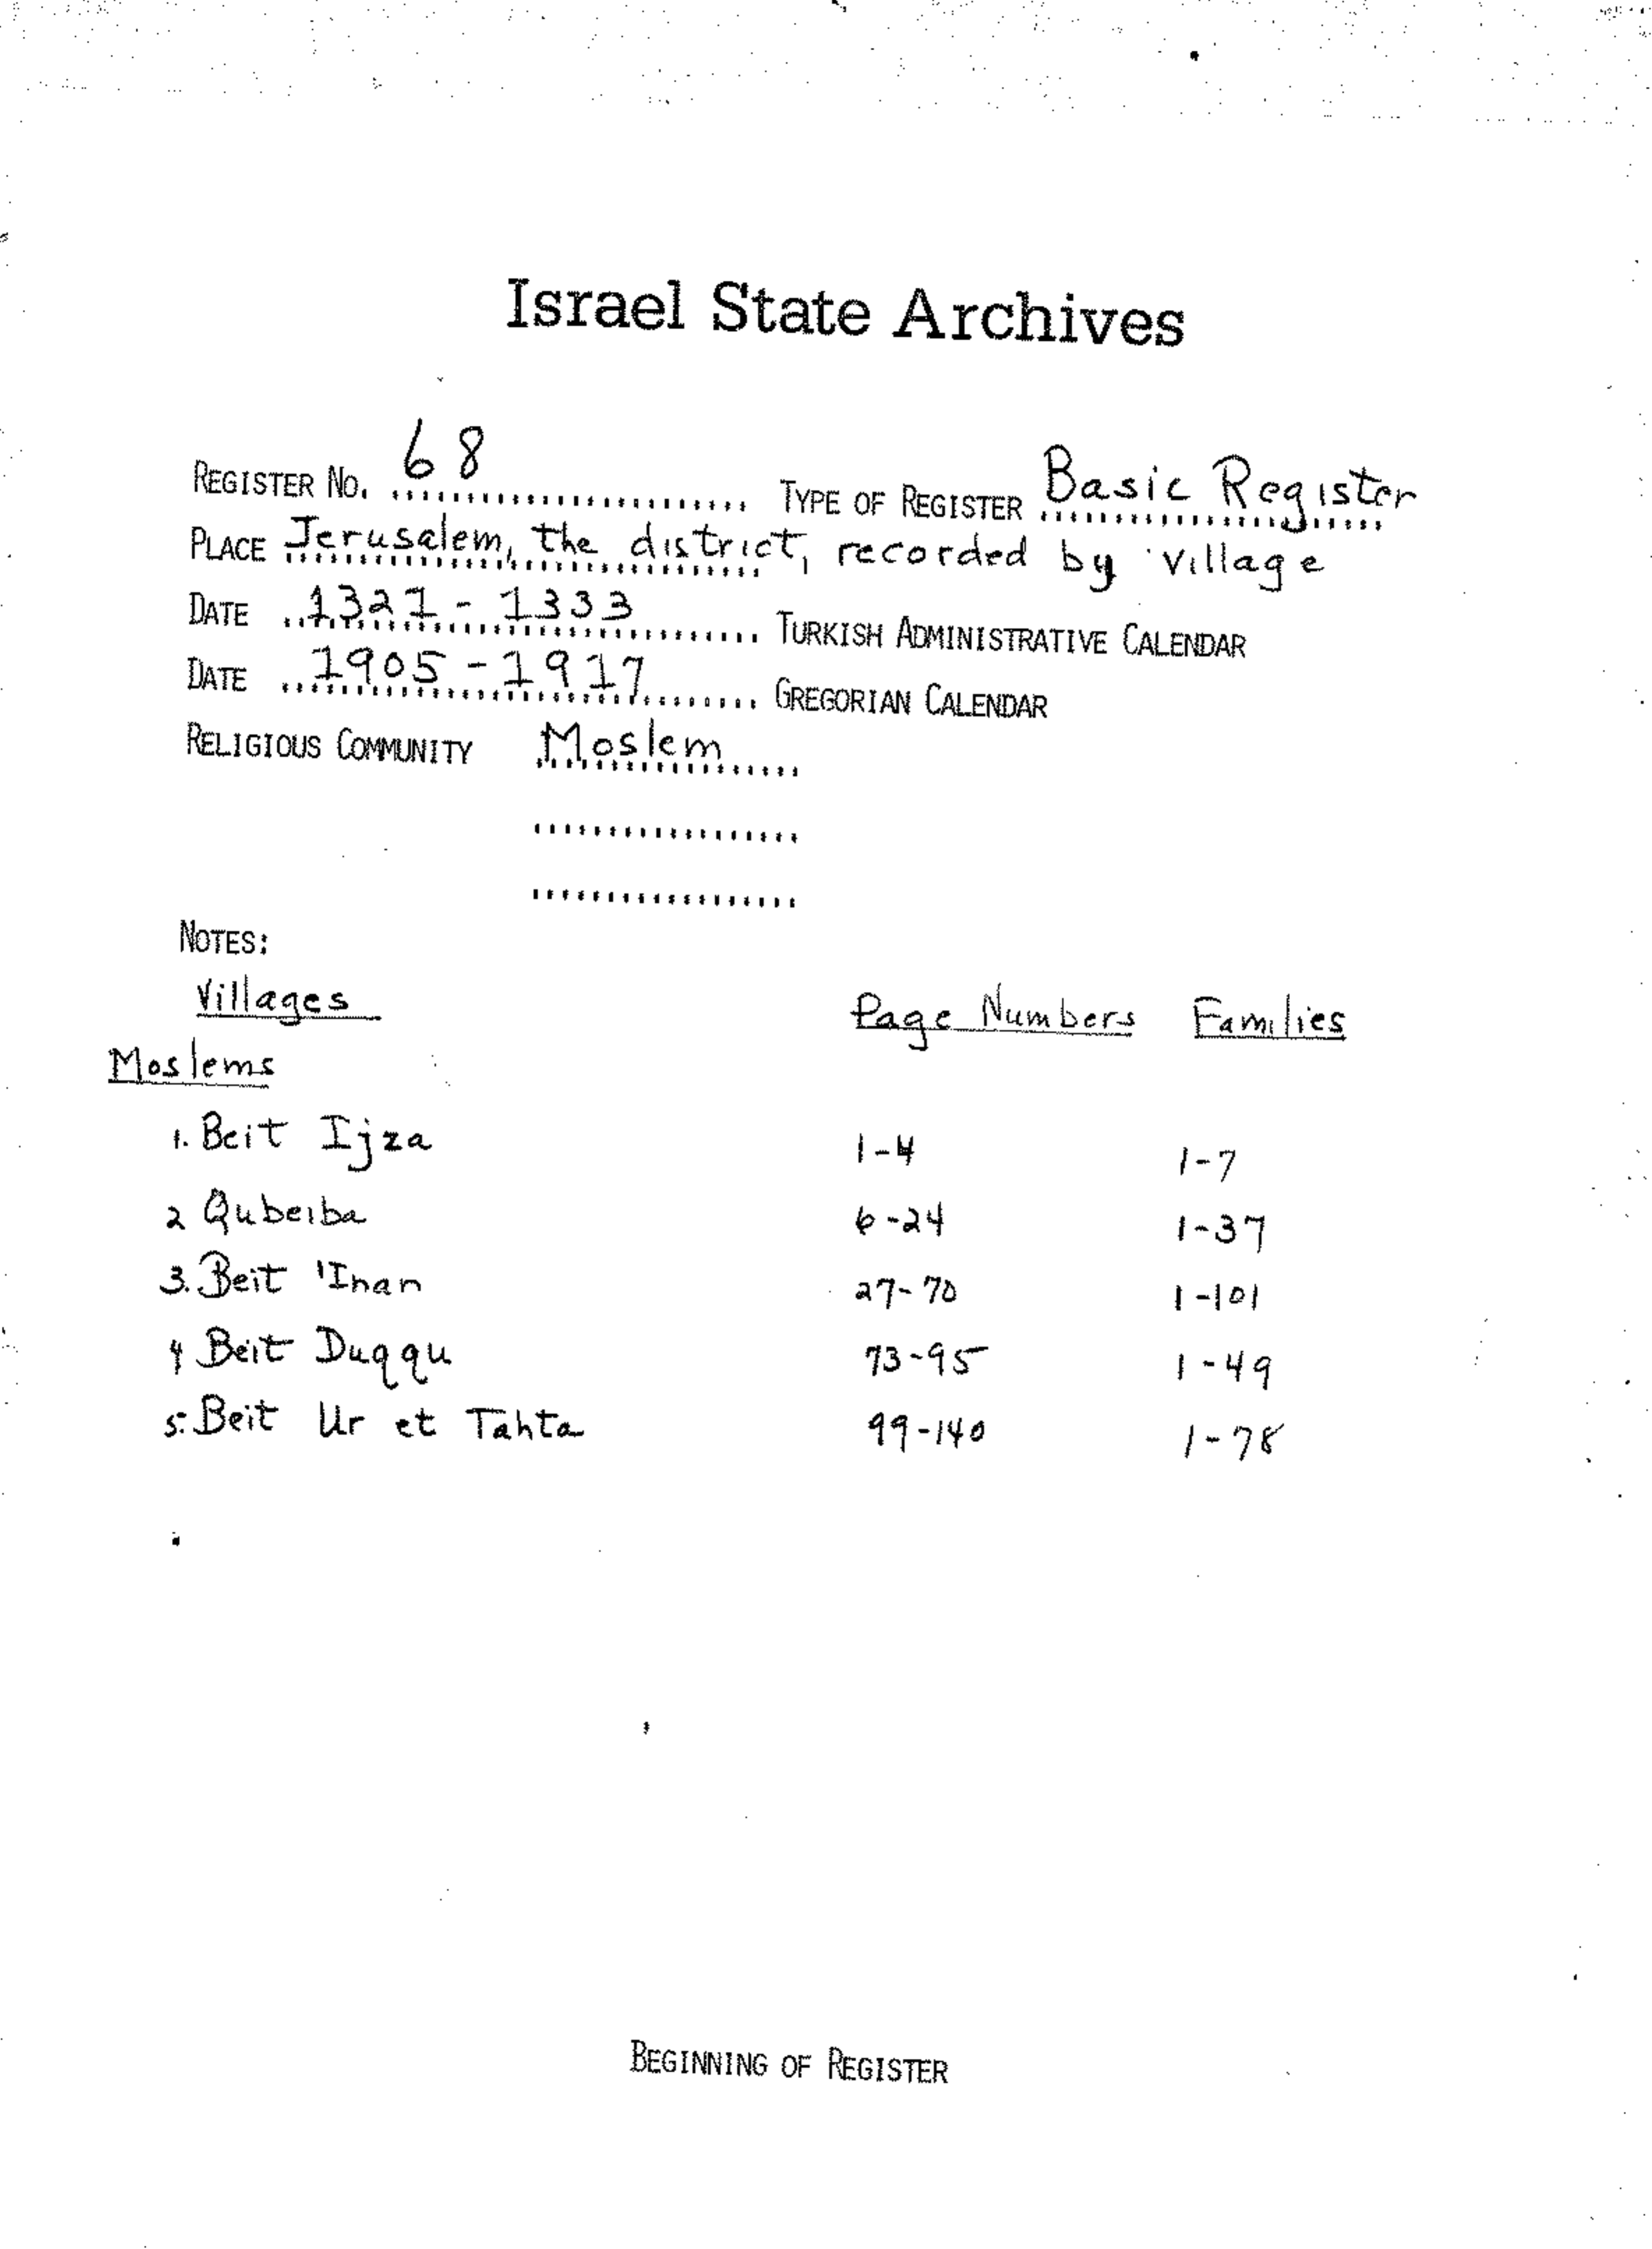 Israel State Archives
REGISTER NO. 68 TYPE OF REGISTER Basic Register
PLACE Jerusalem, the district, recorded by village
DATE 1321 - 1333 TURKISH ADMINISTRATIVE CALENDAR
DATE 1905 - 1917 GREGORIAN CALENDAR
RELIGIOUS COMMUNITY Moslem
NOTES:
Villages Page Numbers Families
Moslems
1. Beit Ijza 1-4 1-7
2 Qubeiba 6-24 1-37
3. Beit 'Inan 27-70 1-101
4 Beit Duqqu 73-95 1-49
5. Beit Ur et Tahta 99-140 1-78
BEGINNING OF REGISTER